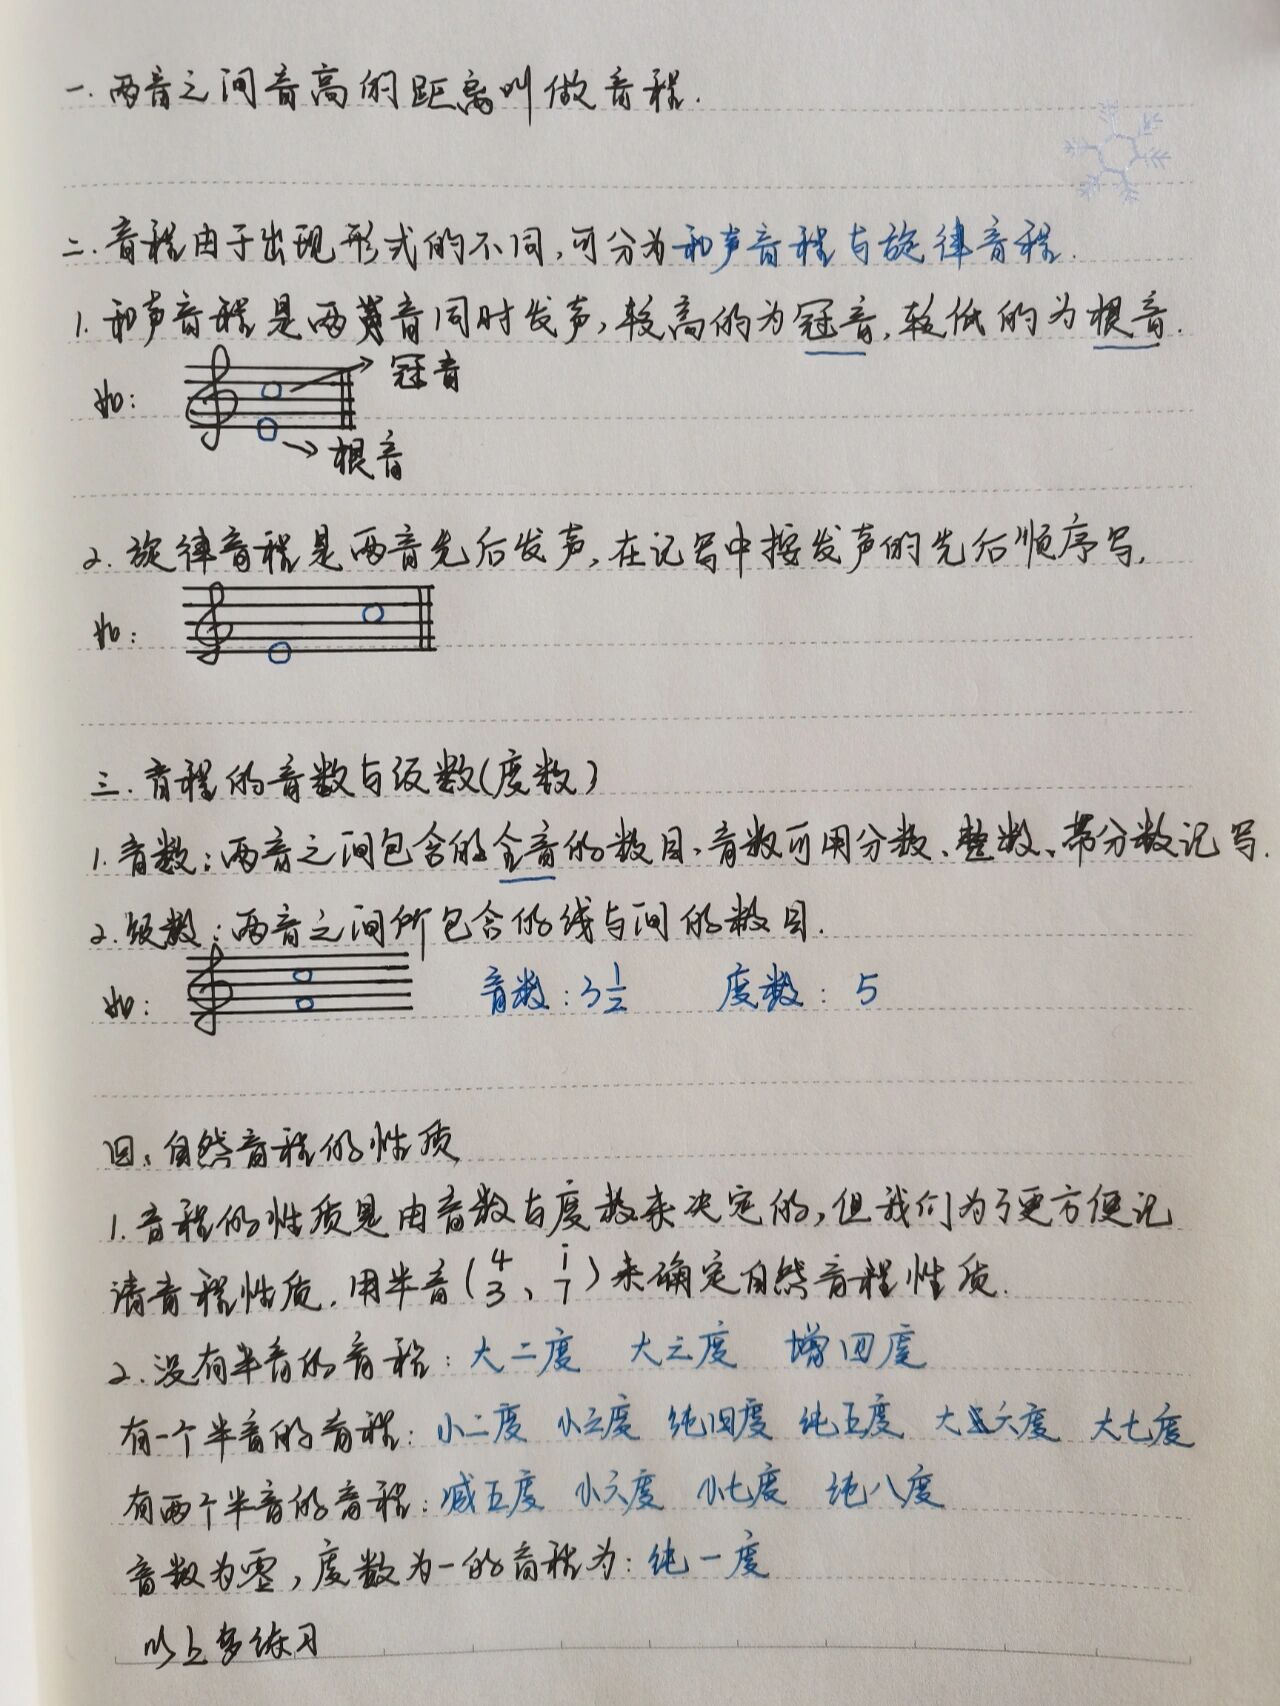 一.两音之间音高的距离叫做音程.
二.音程由于出现形式的不同,可分为和声音程与旋律音程.
1.和声音程是两音同时发声,较高的为冠音,较低的为根音.
如: 冠音
根音
2.旋律音程是两音先后发声,在记写中按发声的先后顺序写,
如:
三.音程的音数与级数(度数)
1.音数:两音之间包含的全音的数目、音数可用分数、整数、带分数记写.
2.级数:两音之间所包含的线与间的数目.
如: 音数:3 1/2 度数: 5
四、自然音程的性质
1.音程的性质是由音数与度数来决定的,但我们为了更方便记
清音程性质.用半音(4/3、i/7)来确定自然音程性质.
2.没有半音的音程: 大二度 大三度 增四度
有一个半音的音程: 小二度 小三度 纯四度 纯五度 大六度 大七度
有两个半音的音程: 减五度 小六度 小七度 纯八度
音数为零,度数为一的音程为: 纯一度
以上多练习